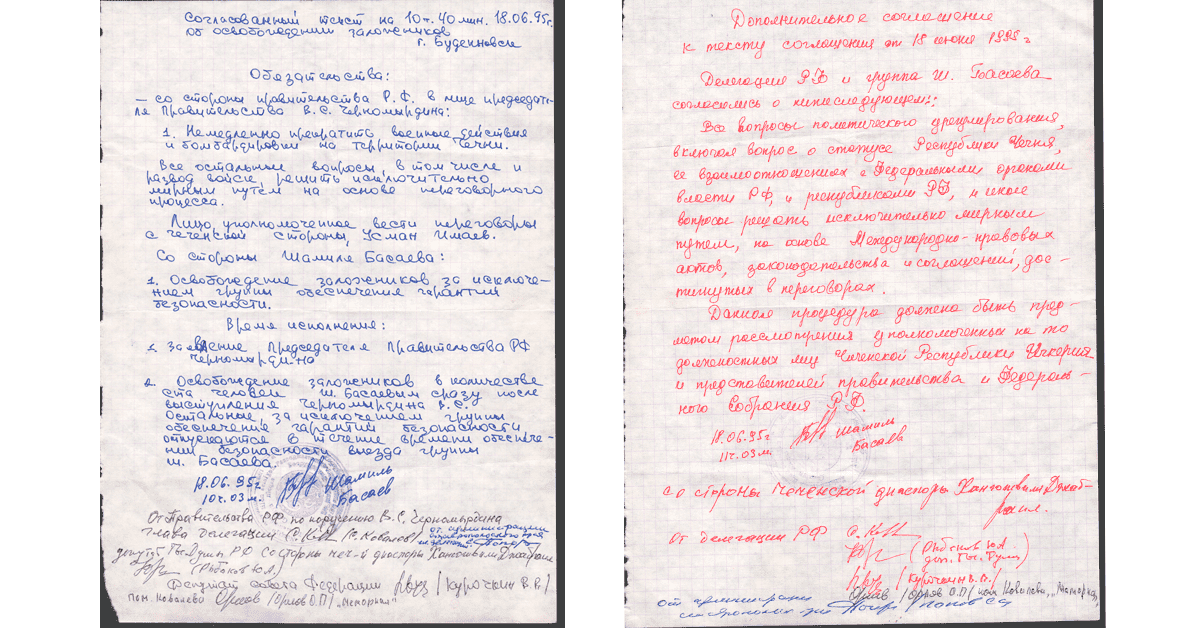 Согласованный текст на 10ч. 40 мин. 18.06.95г.
об освобождении заложников
г. Буденновск
Обязательства:
— со стороны правительства Р.Ф. в лице председате-
ля Правительства В.С. Черномырдина:
1. Немедленно прекратить военные действия
и бомбардировки на территории Чечни.
Все остальные вопросы, в том числе и
развод войск, решить исключительно
мирным путём на основе переговорного
процесса.
Лицо, уполномоченное вести переговоры
с чеченской стороны, Усман Имаев.
Со стороны Шамиля Басаева:
1. Освобождение заложников за исключе-
нием группы обеспечения гарантии
безопасности.
Время исполнения:
1. Заявление Председателя Правительства РФ
Черномырдина
2. Освобождение заложников в количестве
ста человек Ш. Басаевым сразу после
выступления Черномырдина В.С.
Остальные, за исключением группы
обеспечения гарантий безопасности
отпускаются в течение времени обеспече-
ния безопасности выезда группы
Ш. Басаева
18.06.95г. Шамиль
10ч. 03м. Басаев
От Правительства РФ по поручению В.С. Черномырдина
глава делегации (С. Ковалов) от администрации
Ставропольского края
депутат Гос. Думы РФ Со стороны чеч-й диаспоры Хангошвили Джабраил
(Рыбаков Ю.А.)
Депутат совета Федерации /Курочкин В.В./
пом. Ковалева Орлов /Орлов О.П./ „Мемориал"
Дополнительное соглашение
к тексту соглашения от 18 июня 1995 г
Делегация РФ и группа Ш. Басаева
согласились о нижеследующем:
Все вопросы политического урегулирования,
включая вопрос о статусе Республики Чечня,
ее взаимоотношениях с Федеральными органами
власти РФ, и республиками РФ, и иные
вопросы решать исключительно мирным
путем, на основе Международно-правовых
актов, законодательства и соглашений, дос-
тигнутых в переговорах.
Данная процедура должна быть пред-
метом рассмотрения уполномоченных на то
должностных лиц Чеченской Республики Ичкерия
и представителей правительства и Федераль-
ного Собрания РФ.
18.06.95г Шамиль
11ч. 03 м. Басаев
со стороны Чеченской диаспоры Хангошвили Джаб-
раил.
От делегации РФ
(Рыбаков Ю.А
деп. Гос. Думы)
/Курочкин В.В./
Орлов /Орлов О.П/ пом Ковалева, „Мемориал"
от администрации
Ставропольского края /Попов